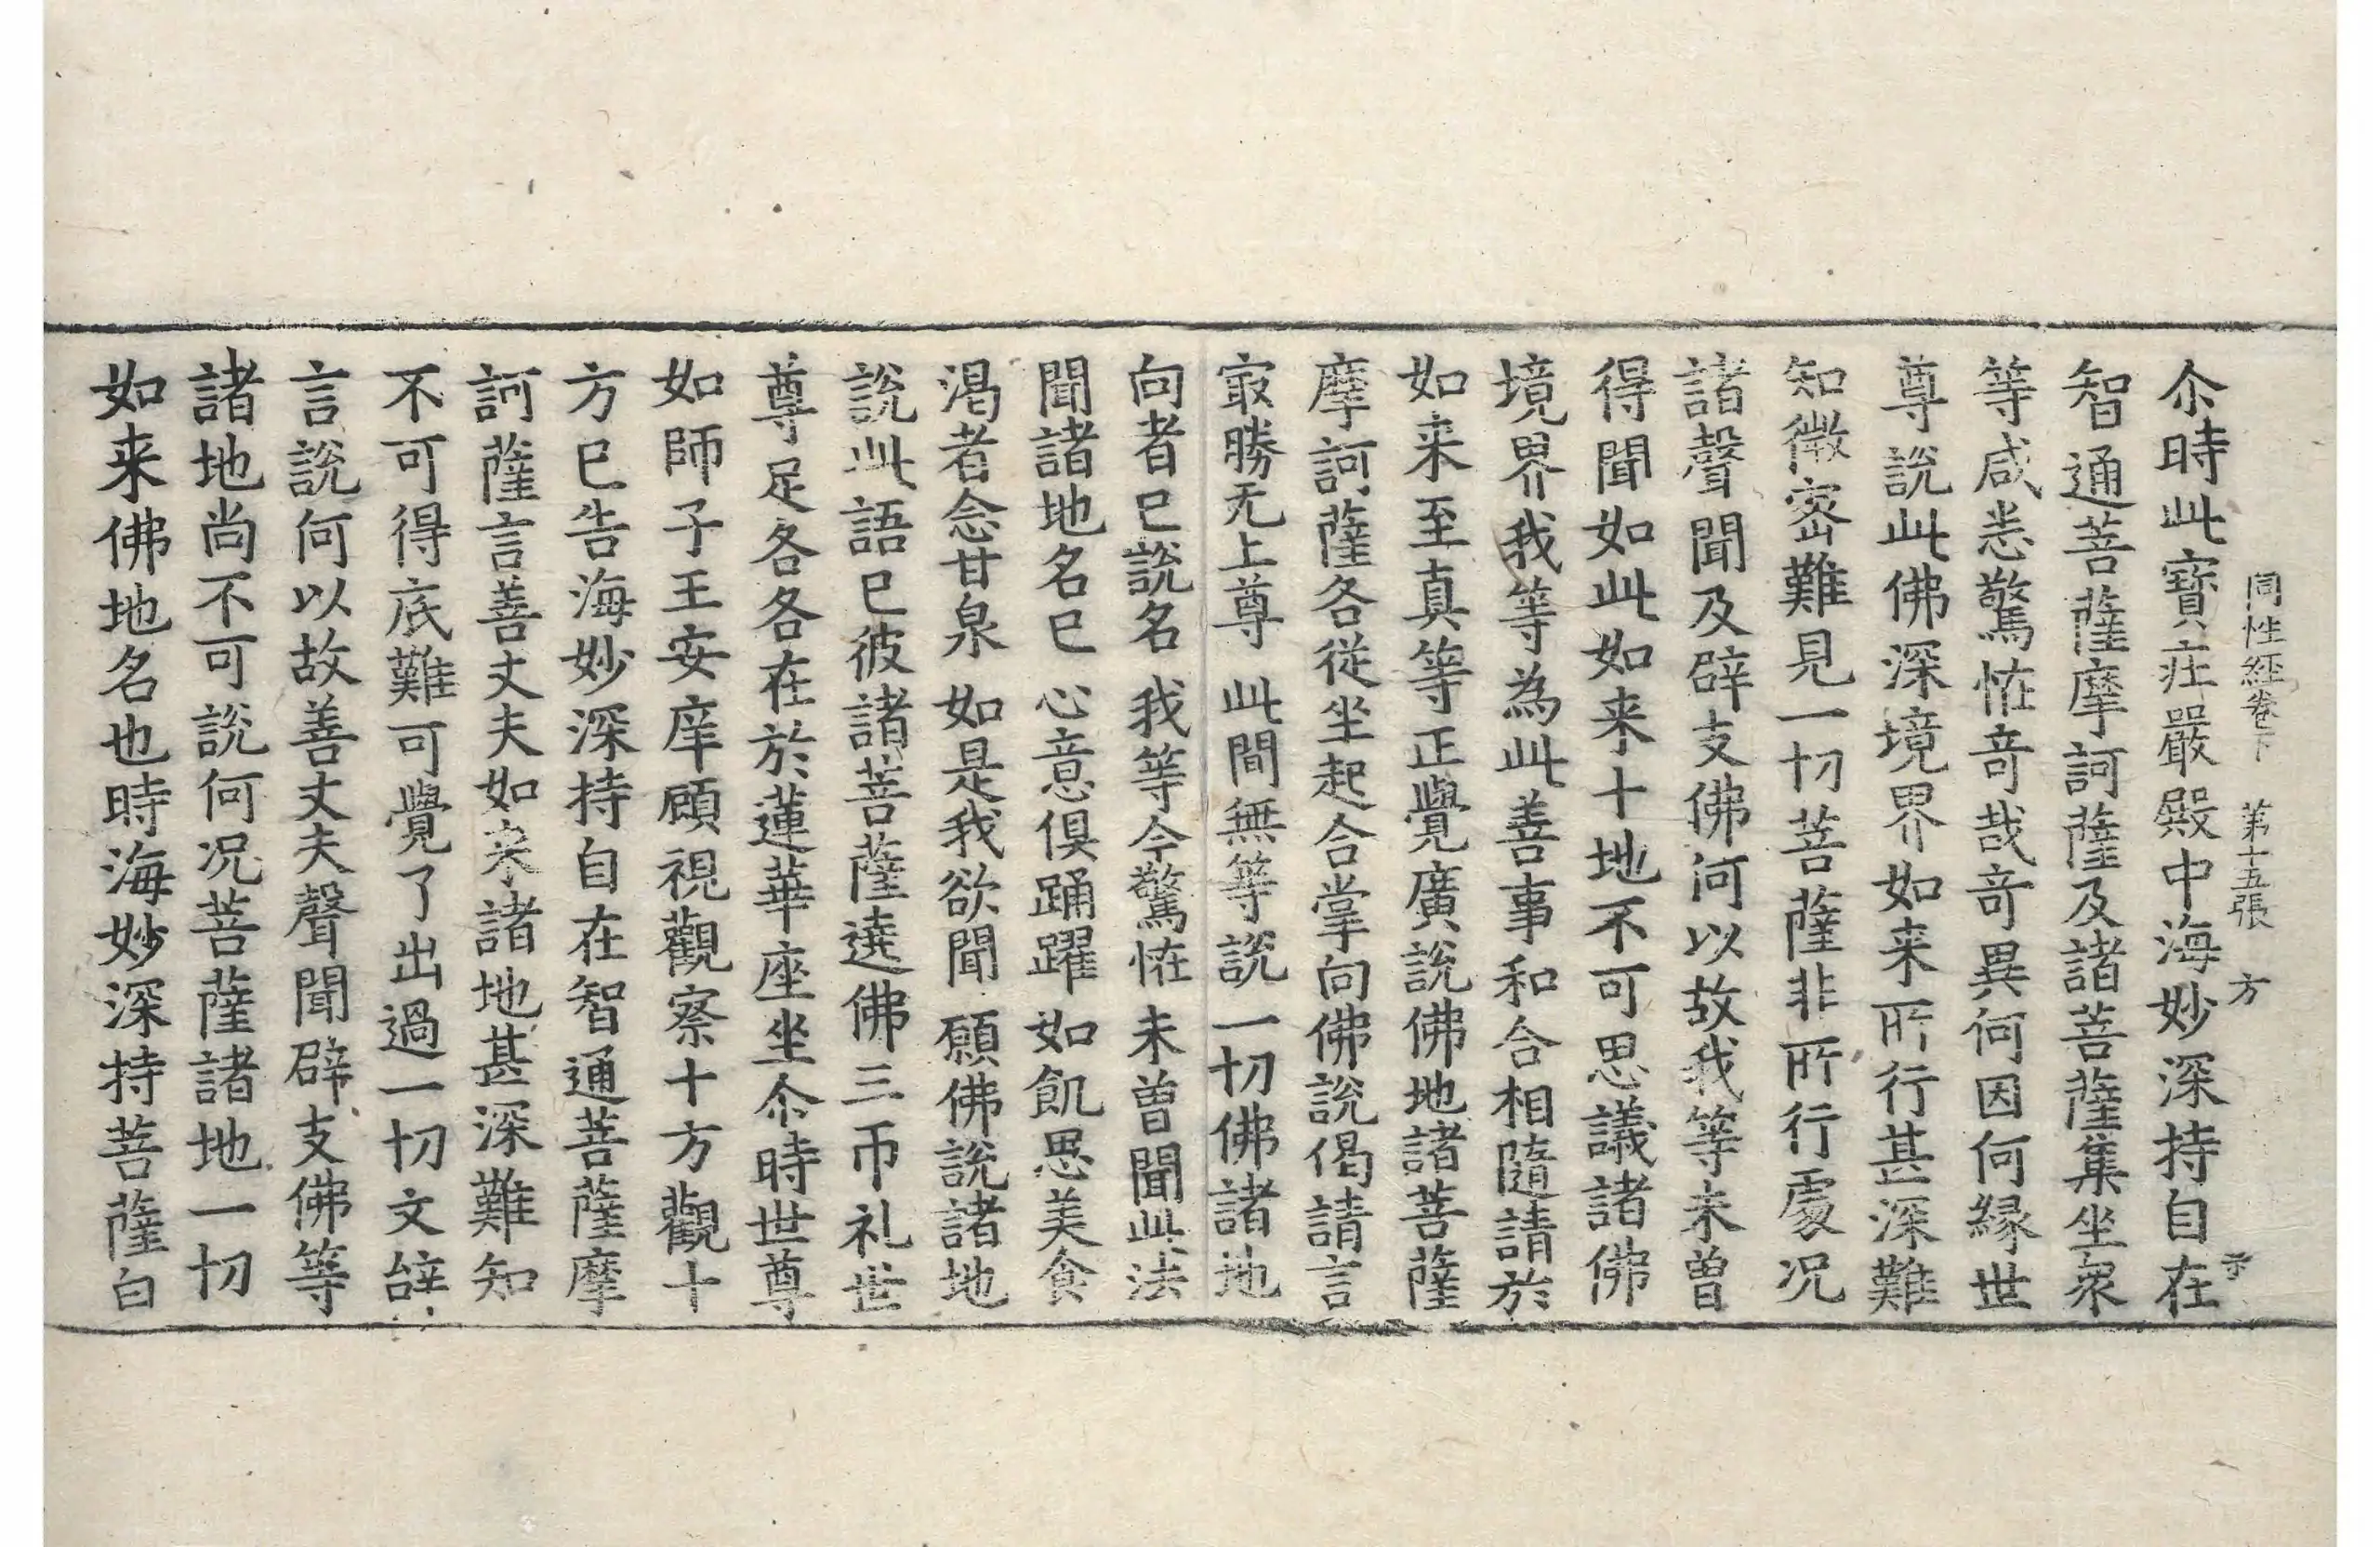 同性經卷下　第十五張　方
尒時此寶莊嚴殿中海妙深持自在
智通菩薩摩訶薩及諸菩薩集坐衆
等咸悉驚恠竒哉竒異何因何縁世
尊說此佛深境界如来所行甚深難
知微宻難見一切菩薩非所行處况
諸聲聞及辟支佛何以故我等未曾
得聞如此如来十地不可思議諸佛
境界我等為此善事和合相隨請於
如来至真等正覺廣說佛地諸菩薩
摩訶薩各從坐起合掌向佛說偈請言
冣勝无上尊　此間無等說　一切佛諸地
向者已說名　我等今驚恠　未曾聞此法
聞諸地名已　心意俱踊躍　如飢思美食
渴者念甘泉　如是我欲聞　願佛說諸地
說此語已彼諸菩薩遶佛三帀礼世
尊足各各在於蓮華座坐尒時世尊
如師子王安庠顧視觀察十方觀十
方已告海妙深持自在智通菩薩摩
訶薩言善丈夫如来諸地甚深難知
不可得底難可覺了出過一切文辝
言說何以故善丈夫聲聞辟支佛等
諸地尚不可說何况菩薩諸地一切
如来佛地名也時海妙深持菩薩白